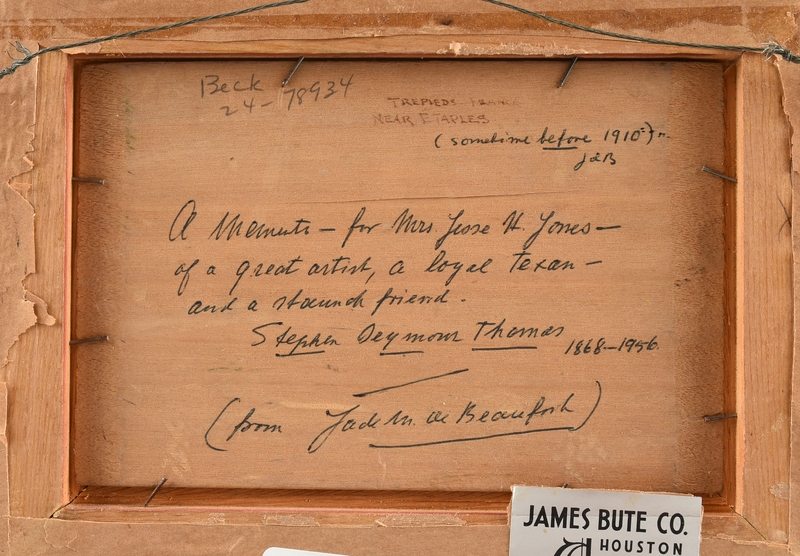 Beck
24-78934
TREPIEDS-FRANCE
NEAR ETAPLES
(sometime before 1910
JdB
A Memento – for Mrs Jesse H. Jones –
of a great artist, a loyal Texan –
and a staunch friend.
Stephen Seymour Thomas 1868–1956.
(from Jade M. de Beaufort)
JAMES BUTE CO.
HOUSTON